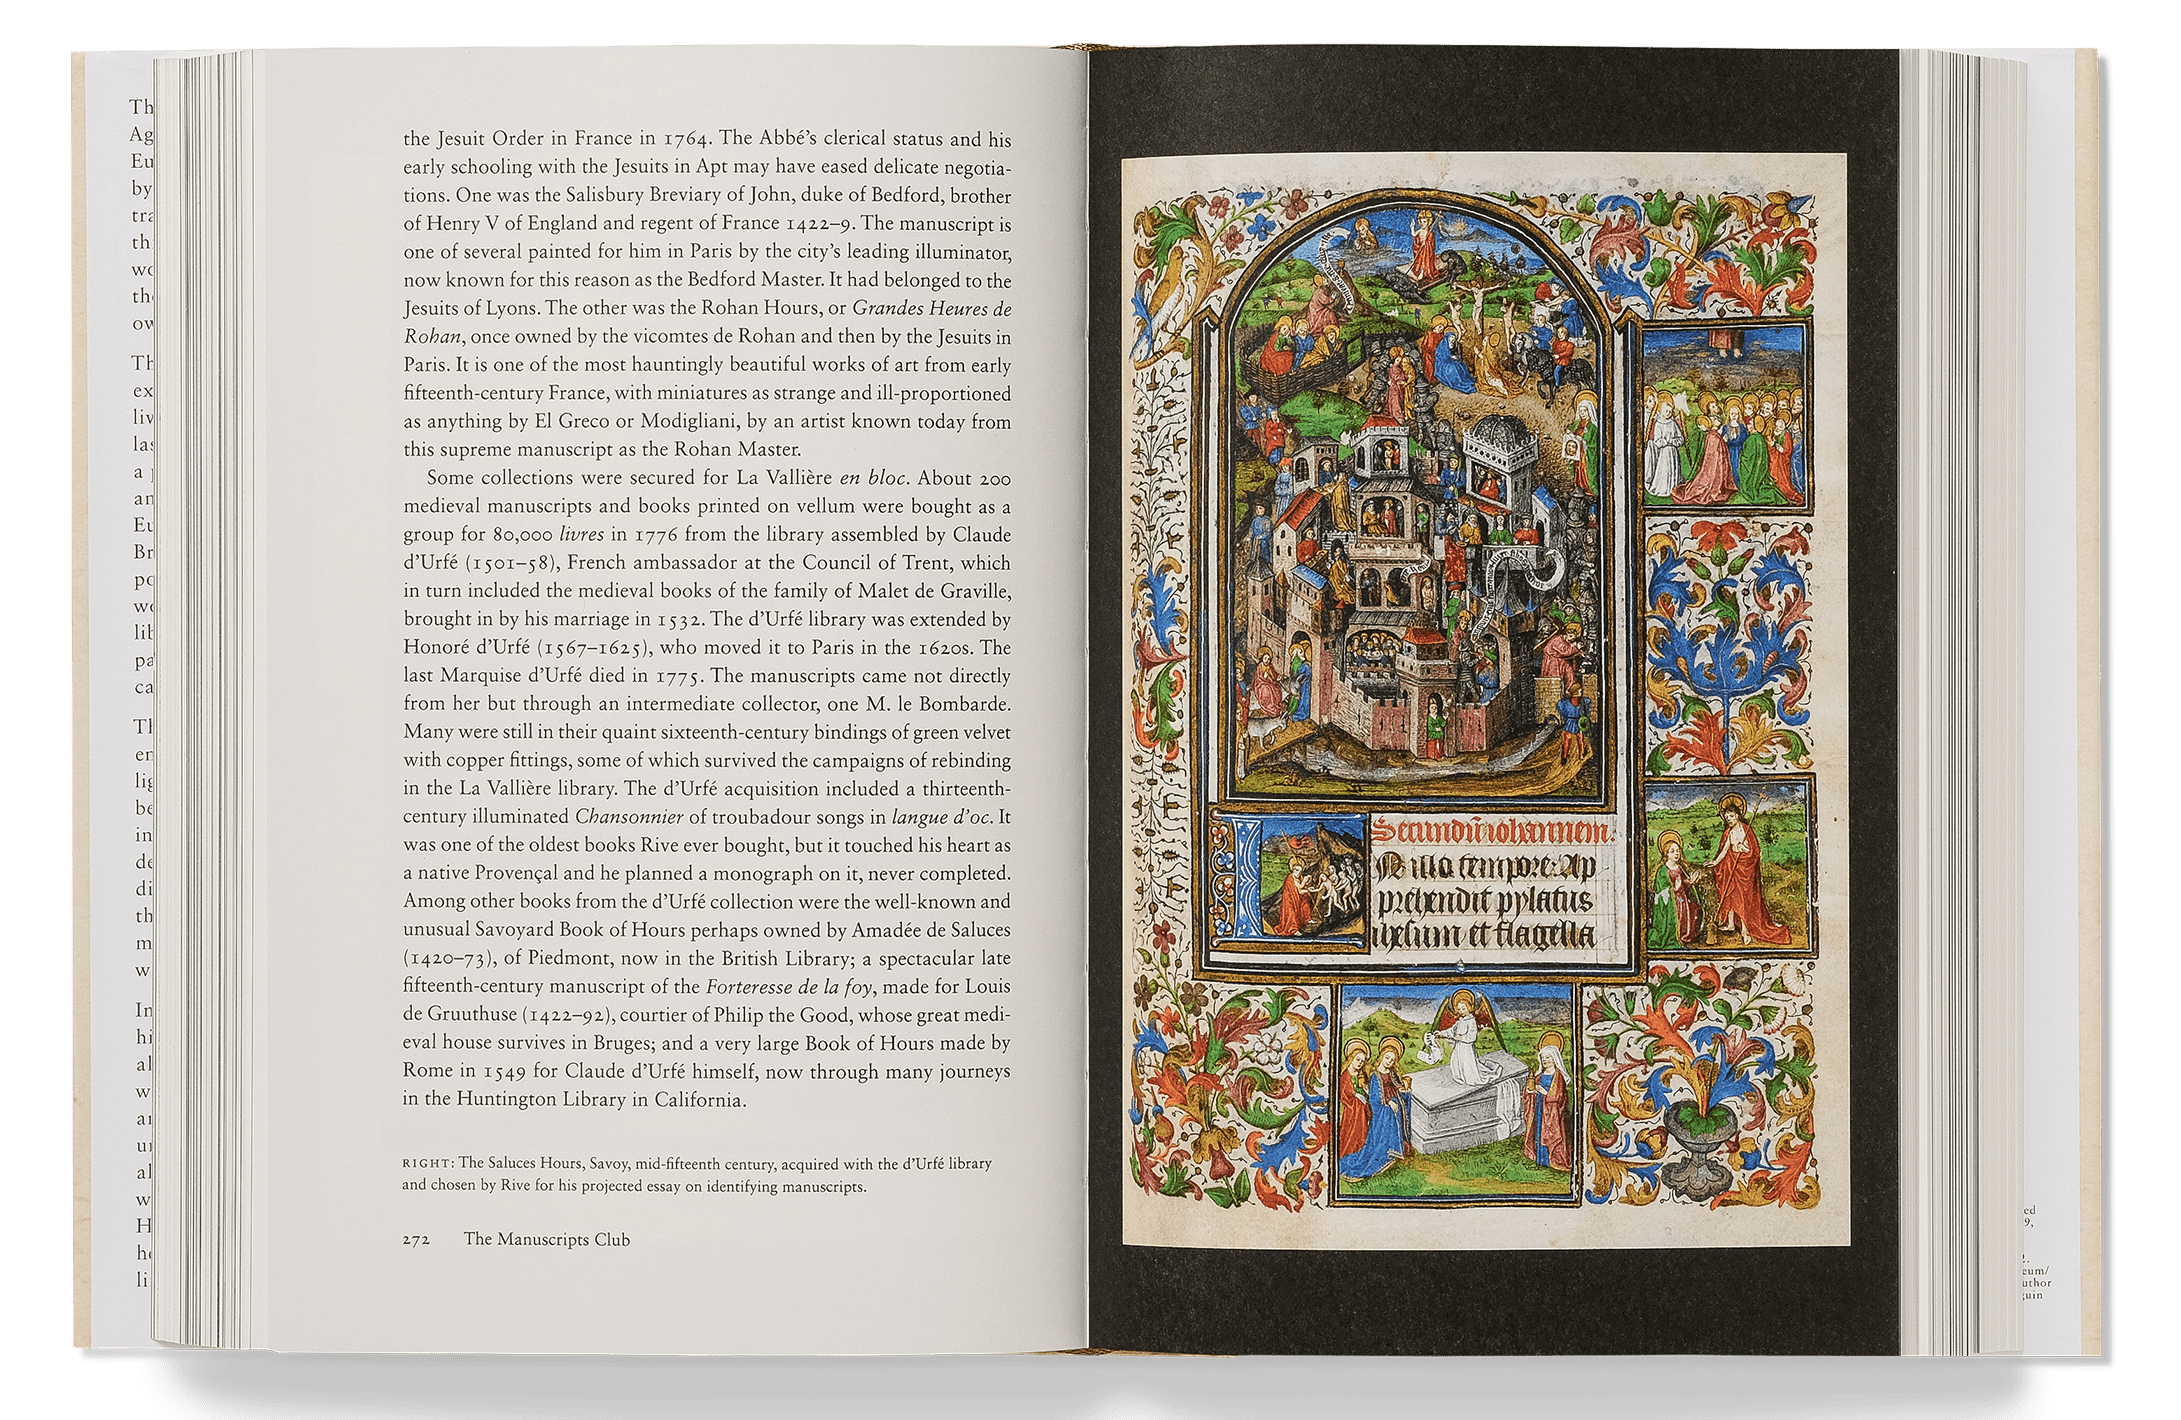 the Jesuit Order in France in 1764. The Abbé's clerical status and his
early schooling with the Jesuits in Apt may have eased delicate negotia-
tions. One was the Salisbury Breviary of John, duke of Bedford, brother
of Henry V of England and regent of France 1422–9. The manuscript is
one of several painted for him in Paris by the city's leading illuminator,
now known for this reason as the Bedford Master. It had belonged to the
Jesuits of Lyons. The other was the Rohan Hours, or Grandes Heures de
Rohan, once owned by the vicomtes de Rohan and then by the Jesuits in
Paris. It is one of the most hauntingly beautiful works of art from early
fifteenth-century France, with miniatures as strange and ill-proportioned
as anything by El Greco or Modigliani, by an artist known today from
this supreme manuscript as the Rohan Master.
Some collections were secured for La Vallière en bloc. About 200
medieval manuscripts and books printed on vellum were bought as a
group for 80,000 livres in 1776 from the library assembled by Claude
d'Urfé (1501–58), French ambassador at the Council of Trent, which
in turn included the medieval books of the family of Malet de Graville,
brought in by his marriage in 1532. The d'Urfé library was extended by
Honoré d'Urfé (1567–1625), who moved it to Paris in the 1620s. The
last Marquise d'Urfé died in 1775. The manuscripts came not directly
from her but through an intermediate collector, one M. le Bombarde.
Many were still in their quaint sixteenth-century bindings of green velvet
with copper fittings, some of which survived the campaigns of rebinding
in the La Vallière library. The d'Urfé acquisition included a thirteenth-
century illuminated Chansonnier of troubadour songs in langue d'oc. It
was one of the oldest books Rive ever bought, but it touched his heart as
a native Provençal and he planned a monograph on it, never completed.
Among other books from the d'Urfé collection were the well-known and
unusual Savoyard Book of Hours perhaps owned by Amadée de Saluces
(1420–73), of Piedmont, now in the British Library; a spectacular late
fifteenth-century manuscript of the Forteresse de la foy, made for Louis
de Gruuthuse (1422–92), courtier of Philip the Good, whose great medi-
eval house survives in Bruges; and a very large Book of Hours made by
Rome in 1549 for Claude d'Urfé himself, now through many journeys
in the Huntington Library in California.
RIGHT: The Saluces Hours, Savoy, mid-fifteenth century, acquired with the d'Urfé library
and chosen by Rive for his projected essay on identifying manuscripts.
272 The Manuscripts Club
Secundum iohannem.
N illo tempore: Ap
prehendit pylatus
ihesum et flagella